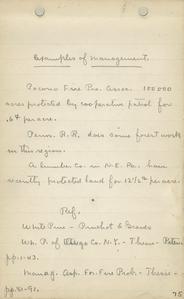 Examples of Management.
Pocono Fire Pro. Assoc. 100 000
acres protected by cooperative patrol for
.64 per acre.
Penn. R.R. does some forest work
in this region.
A lumber co. in N.E. Pa. have
recently protected land for 12½¢ per acre.
Ref.
White Pine - Pinchot & Graves
Wk. P. of Co. N.Y. - Thesis -
pp. 1-43.
Manag. Asp. For. Fire Prob. - Thesis -
pp. 81-91.
75